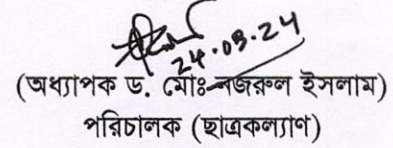 24.09.24
(অধ্যাপক ড. মোঃ নজরুল ইসলাম)
পরিচালক (ছাত্রকল্যাণ)